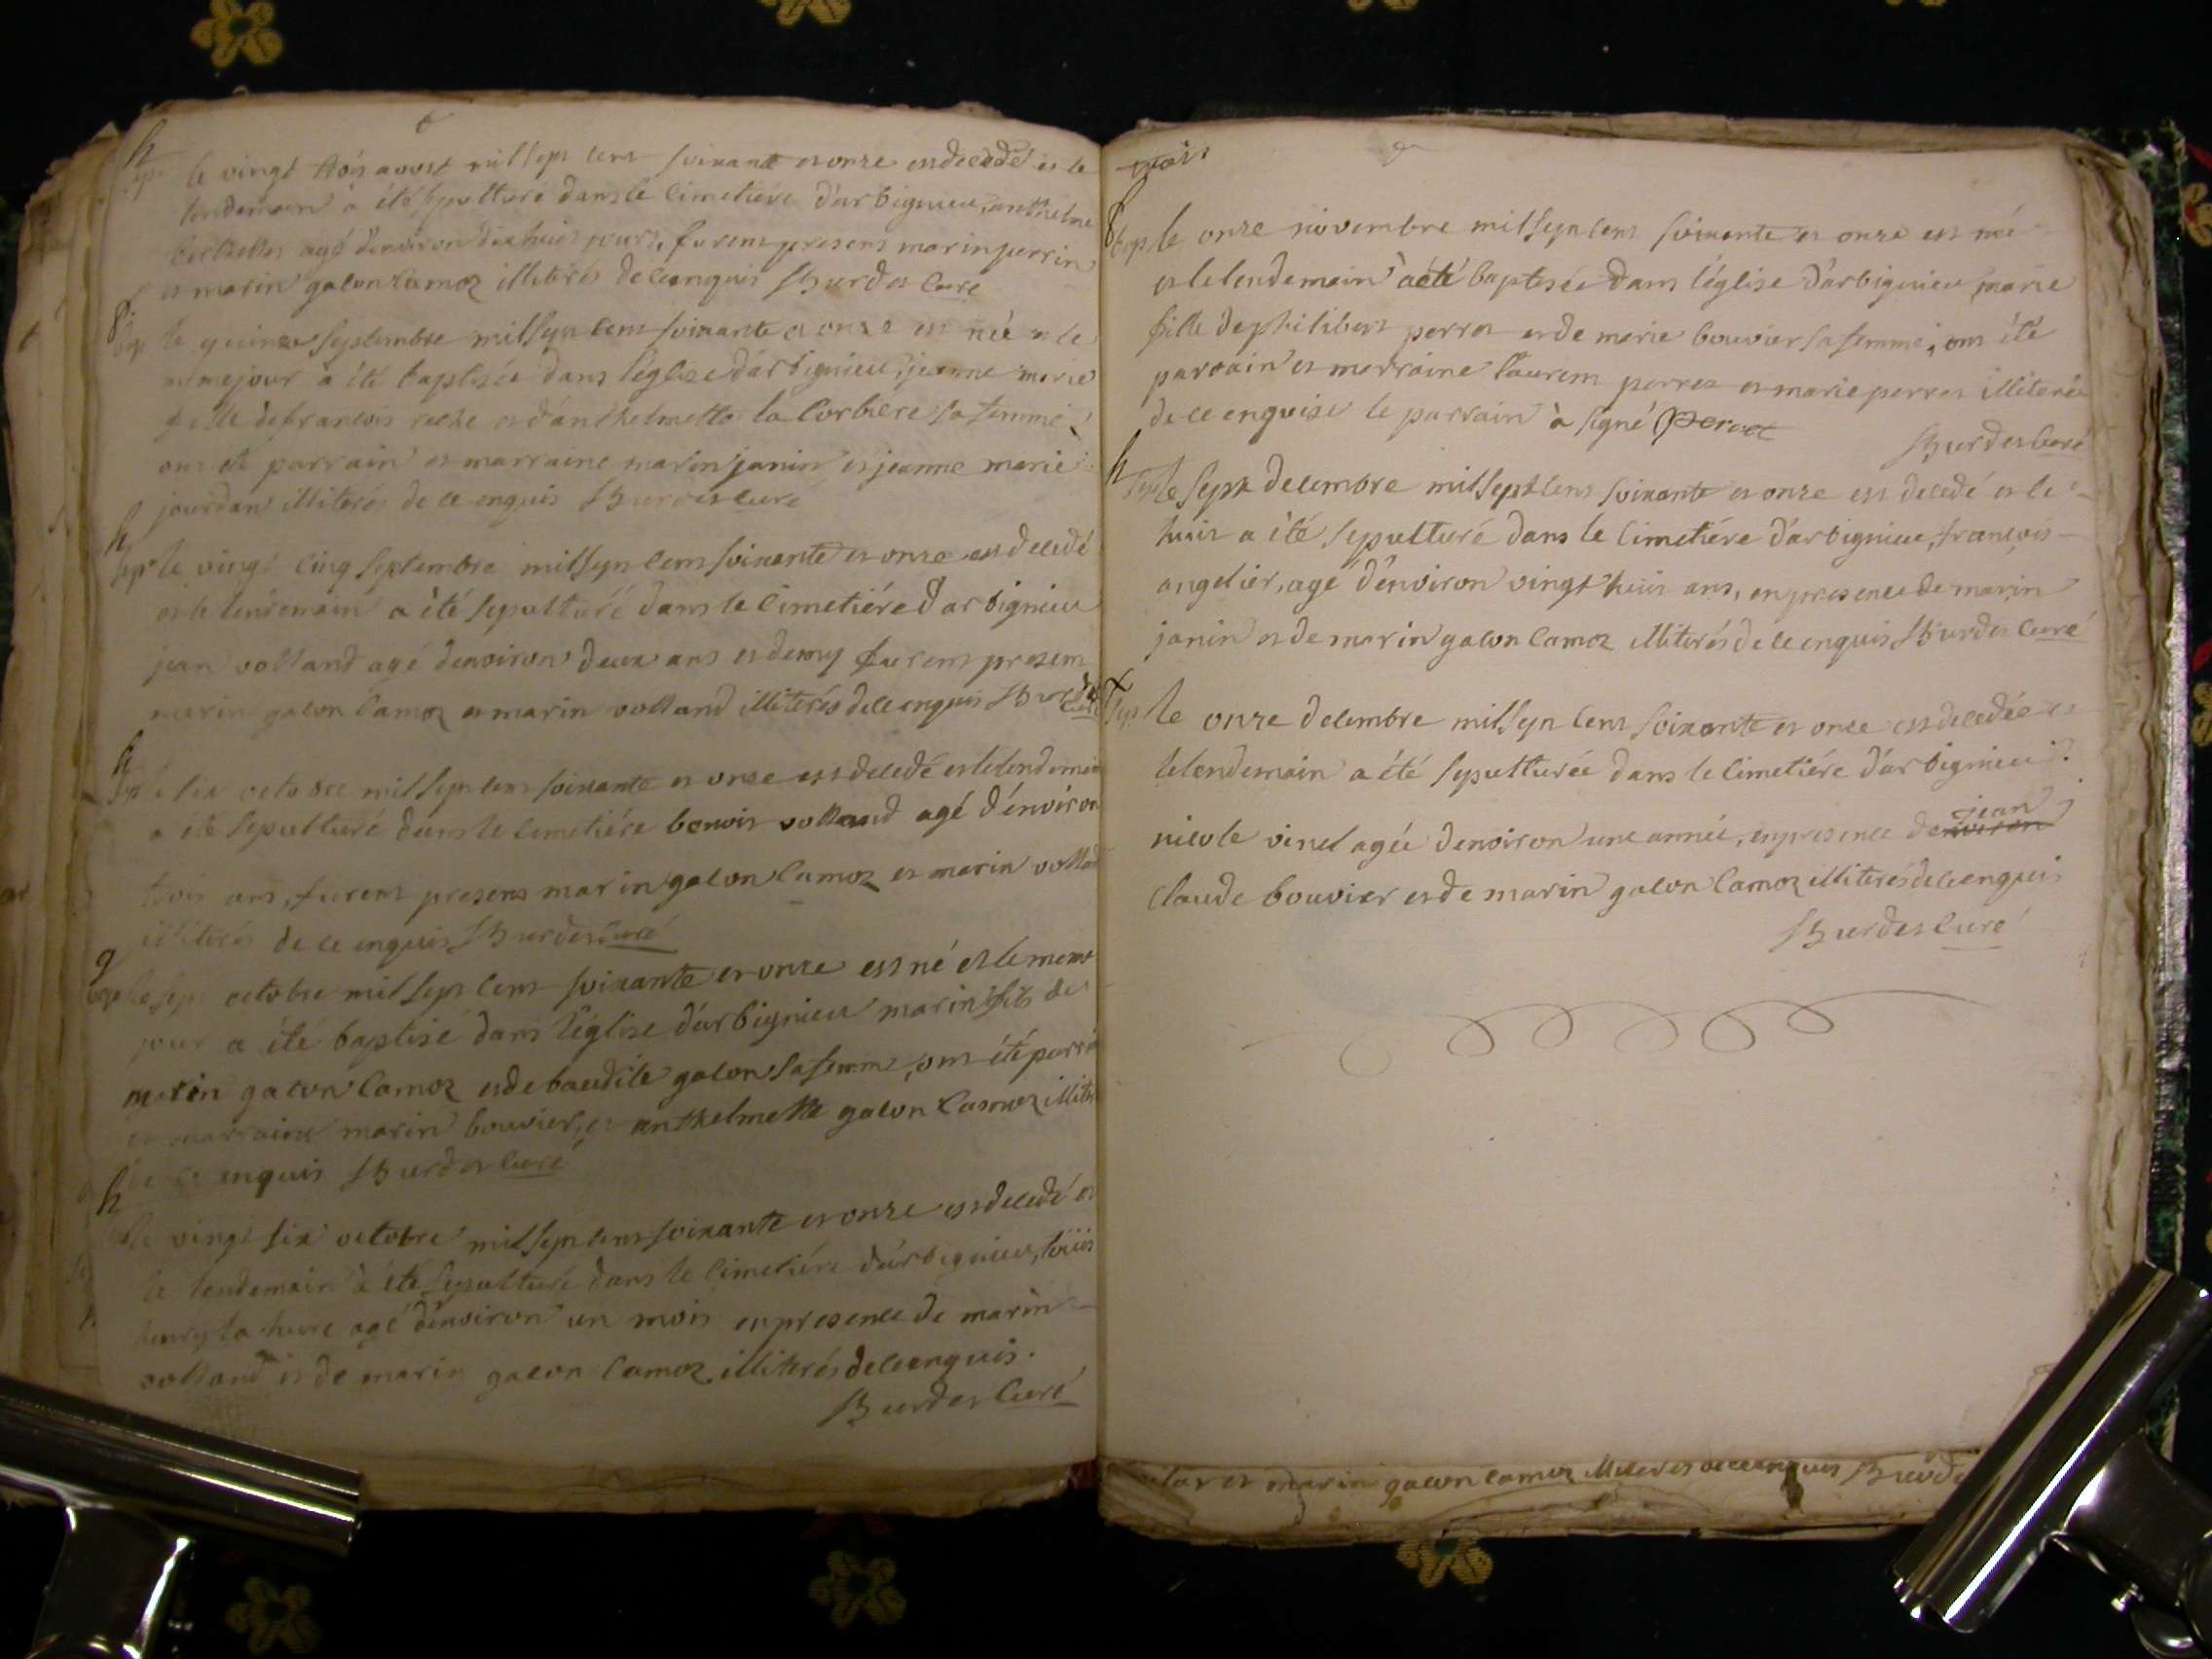 h
sep. le vingt trois aoust mil sept cent soixante et onze est decedé et le
lendemain à été sepulturé dans le Cimetiére d'arbignieu, anthelme
agé d'environ dix huit jours, furent presens marin perrin
et marin galon Camoz illiterés de ce enquis Burdet Curé
8
bap le quinze septembre mil sept cent soixante et onze est née et le
meme jour à été baptisée dans l'église d'arbignieu, jeanne marie
fille de françois roche et d'anthelmette la Corbiere sa femme,
ont été parrain et marraine marin janin et jeanne marie
jourdan illiterés de ce enquis Burdet curé
h
sep le vingt cinq septembre mil sept cent soixante et onze est decedé
et le lendemain a été sepulturé dans le Cimetiére d'arbignieu
jean volland agé denviron deux ans et demy furent presens
marin galon Camoz et marin volland illiterés de ce enquis Burdet
Curé
h
sep le six octobre mil sept cent soixante et onze est decedé et le lendemain
a été sepulturé dans le Cimetiére benoit volland agé d'environ
trois ans, furent presens marin galon Camoz et marin volland
illiterés de ce enquis Burdet Curé
9
bap le sept octobre mil sept cent soixante et onze est né et le meme
jour a été baptisé dans l'église d'arbignieu marin fils de
marin galon Camoz et de baudile galon sa femme, ont été parrain
et marraine marin bouvier, et anthelmette galon Camoz illiterés
de ce enquis Burdet Curé
h
le vingt six octobre mil sept cent soixante et onze est decedé et
le lendemain à été sepulturé dans le Cimetiére d'arbignieu, loüis
henry la hure agé d'environ un mois en presence de marin
volland et de marin galon Camoz illiterés de ce enquis.
Burdet Curé
8
bap le onze novembre mil sept cent soixante et onze est née
et le lendemain à été baptisée dans l'église d'arbignieu marie
fille de philibert perret et de marie bouvier sa femme, ont été
parrain et marraine laurent perret et marie perret illiterée
de ce enquise le parrain à signé Peroet
Burdet Curé
h
sep le sept decembre mil sept cent soixante et onze est decedé et le
huit a été sepulturé dans le Cimetiére d'arbignieu, françois
angelier, agé d'environ vingt huit ans, en presence de marin
janin et de marin galon Camoz illiterés de ce enquis Burdet Curé
sep le onze decembre mil sept cent soixante et onze est decedée et
le lendemain a été sepulturée dans le Cimetiére d'arbignieu
nicole vinet agée denviron une année, en presence denviron jean
Claude bouvier et de marin galon Camoz illiterés de ce enquis
Burdet Curé
et marin galon Camoz illiterés de ce enquis Burdet